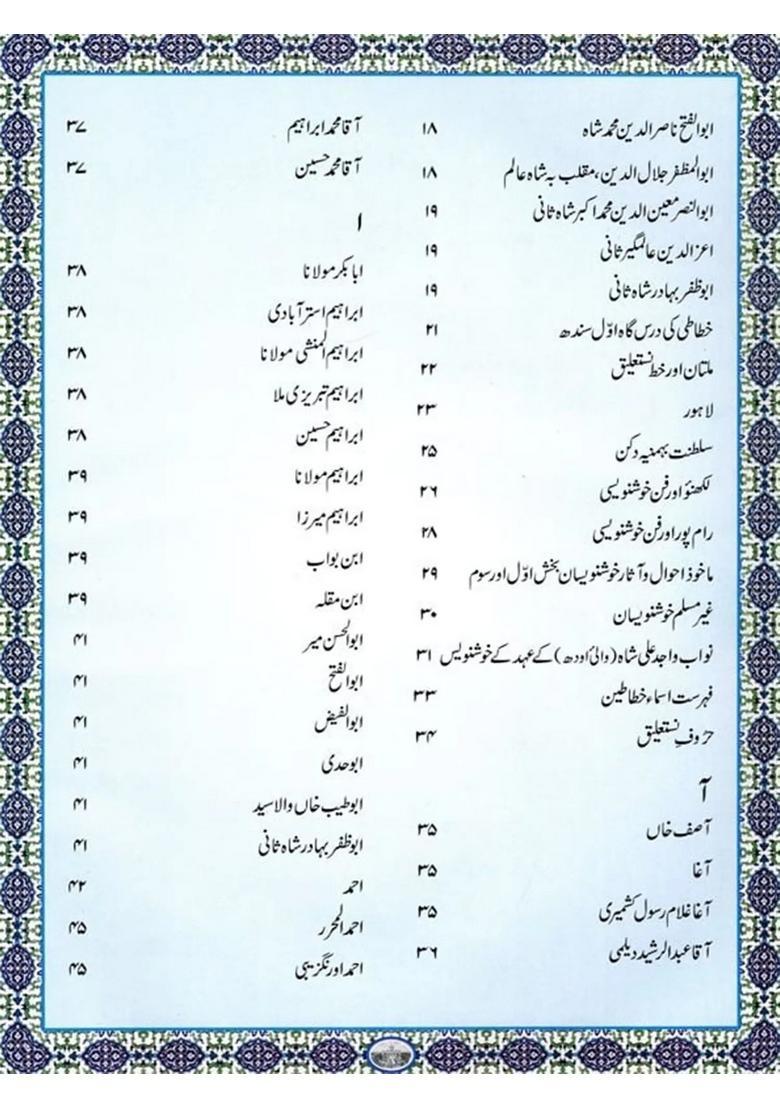 ابوالفتح ناصر الدین محمد شاہ ۱۸
ابوالمظفر جلال الدین، مقلب بہ شاہ عالم ۱۸
ابوالنصر معین الدین محمد اکبر شاہ ثانی ۱۹
اعز الدین عالمگیر ثانی ۱۹
ابوظفر بہادر شاہ ثانی ۱۹
خطاطی کی درس گاہ اوّل سندھ ۲۱
ملتان اور خط نستعلیق ۲۲
لاہور ۲۳
سلطنت بہمنیہ دکن ۲۵
لکھنؤ اور فن خوشنویسی ۲۶
رام پور اور فن خوشنویسی ۲۸
ماخوذ احوال و آثار خوشنویسان بخش اوّل اور سوم ۲۹
غیر مسلم خوشنویسان ۳۰
نواب واجد علی شاہ (والیٔ اودھ) کے عہد کے خوشنویس ۳۱
فہرست اسماء خطاطین ۳۳
حروفِ نستعلیق ۳۴
آ
آصف خاں ۳۵
آغا ۳۵
آغا غلام رسول کشمیری ۳۵
آقا عبدالرشید دیلمی ۳۶
آقا محمد ابراہیم ۳۷
آقا محمد حسین ۳۷
ا
ابابکر مولانا ۳۸
ابراہیم استرآبادی ۳۸
ابراہیم المنشی مولانا ۳۸
ابراہیم تبریزی ملا ۳۸
ابراہیم حسین ۳۸
ابراہیم مولانا ۳۹
ابراہیم میرزا ۳۹
ابن بواب ۳۹
ابن مقلہ ۳۹
ابوالحسن میر ۴۱
ابوالفتح ۴۱
ابوالفیض ۴۱
ابوحدی ۴۱
ابوطیب خاں والا سید ۴۱
ابوظفر بہادر شاہ ثانی ۴۱
احمد ۴۲
احمد المحرر ۴۵
احمد اورنگزیبی ۴۵